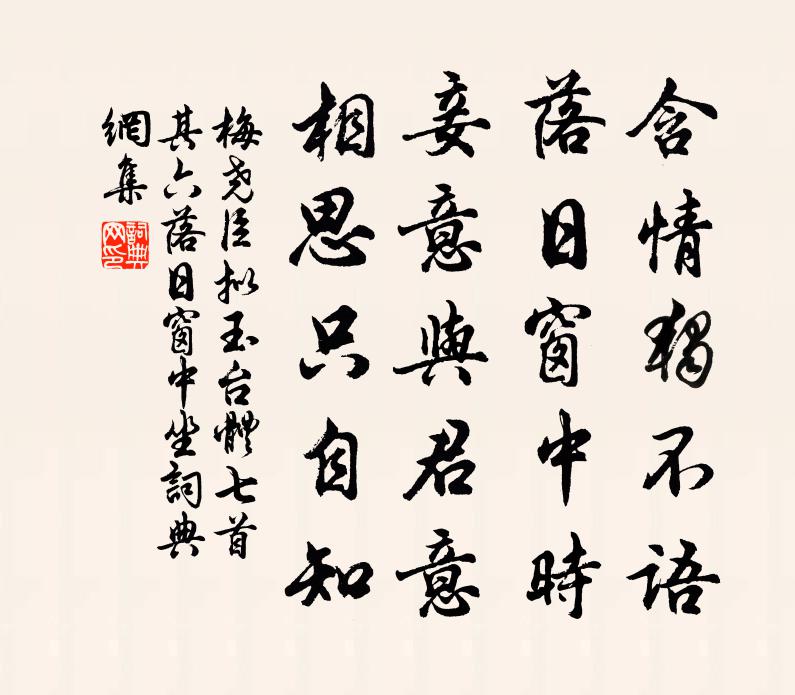 含情獨不語
落日窗中時
妾意與君意
相思只自知
梅尧臣拟玉台體七首
其六落日窗中坐詞典
網集
詞典
网印